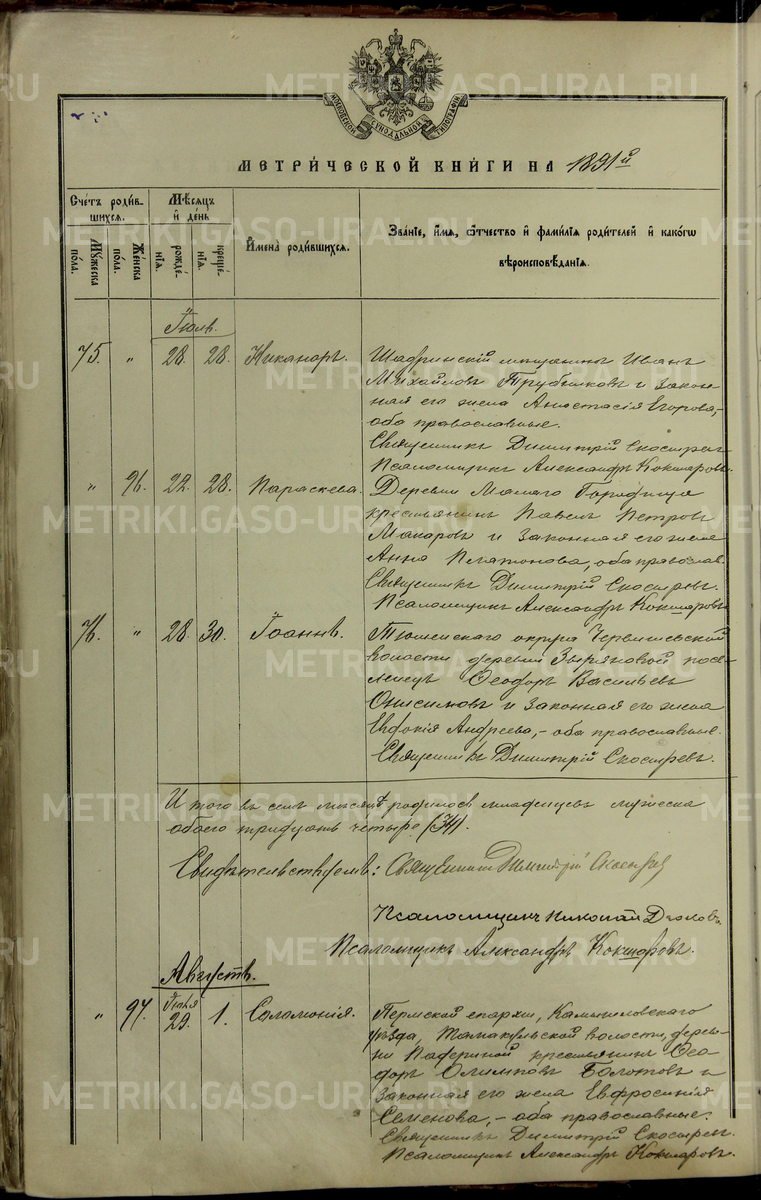 МОСКОВСКОЙ СѴНОДАЛЬНОЙ ТИПОГРАФІИ
МЕТРИ́ЧЕСКОЙ КНИ́ГИ НА 1891й
Сче́тъ роди́в-
шихся.
Мѣ́сяцъ
и҆ де́нь
И҆мена̀ роди́вшихся.
Зва́нїе, и҆́мя, ѻ҆́тчество и҆ фами́лїя роди́телей и҆ како́гѡ
вѣроисповѣ́данїя.
Мꙋ́жеска
пола.
Же́нска
пола.
рожде́-
нїя.
креще́-
нїя.
Іюль.
75. " 28. 28. Никаноръ. Шадринскій мѣщанинъ Иванъ
Михайловъ Трубниковъ и закон-
ная его жена Анастасія Егорова,-
оба православные.
Священникъ Димитрій Скосыревъ
Псаломщикъ Александръ Кокшаровъ.
" 96. 22. 28. Параскева. Деревни Малаго Городища
крестьянинъ Павелъ Петровъ
Макаровъ и законная его жена
Анна Платонова, оба православ.
Священникъ Димитрій Скосыревъ.
Псаломщикъ Александръ Кокшаровъ
76. " 28. 30. Іоаннъ. Тюменскаго округа Червишевской
волости деревни Зыряновой посе-
ленецъ Ѳеодоръ Васильевъ
Онисимовъ и законная его жена
Евдокія Андреева,- оба православные.
Священникъ Димитрій Скосыревъ.
Итого въ семъ мѣсяцѣ родилось младенцевъ мужеска
обоего тридцать четыре (34).
Свидѣтельствуемъ: Священникъ Димитрій Скосыревъ
Псаломщикъ Николай Дьяковъ.
Псаломщикъ Александръ Кокшаровъ.
Августъ.
" 97. Іюля 29. 1. Саломонія. Пермской епархіи, Камышловскаго
уѣзда, Тамакульской волости, дерев-
ни Падериной крестьянинъ Ѳео-
доръ Олимповъ Болотовъ и
законная его жена Евфросинія
Семенова,- оба православные.
Священникъ Димитрій Скосыревъ.
Псаломщикъ Александръ Кокшаровъ.
METRIKI.GASO-URAL.RU